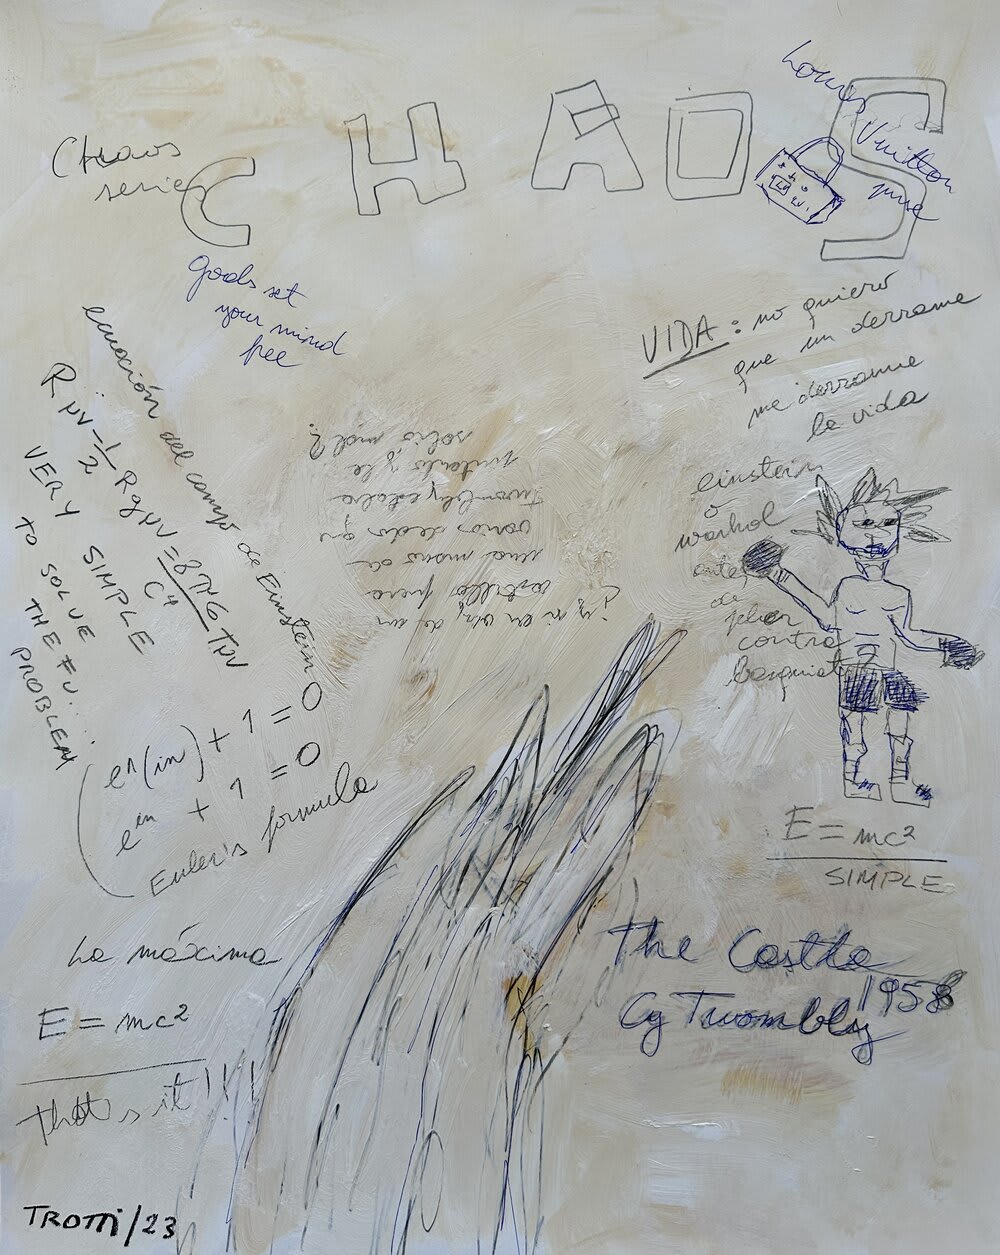 CHAOS
Chaos
series
Louis
Vuitton
goods set
your mind
free
VIDA: no quiero
que un derrame
me derrame
la vida
ecuación del campo de Einstein
Rμν-1/2 Rgμν=8πG/C4 Tμν
VERY SIMPLE
TO SOLVE
THE F...
PROBLEM
¿y si en vez de un
castillo fuera
una mano de
varios dedos que
Twombly estaba
pintando y le
salió mal?
einstein
o
warhol
antes
de
pelear
contra
basquiat?
e^(in) + 1 = 0
e^in + 1 = 0
Euler's formula
E = mc²
SIMPLE
La máxima
E = mc²
That's it!!!
The Castle
1958
Cy Twombly
TROTTI/23